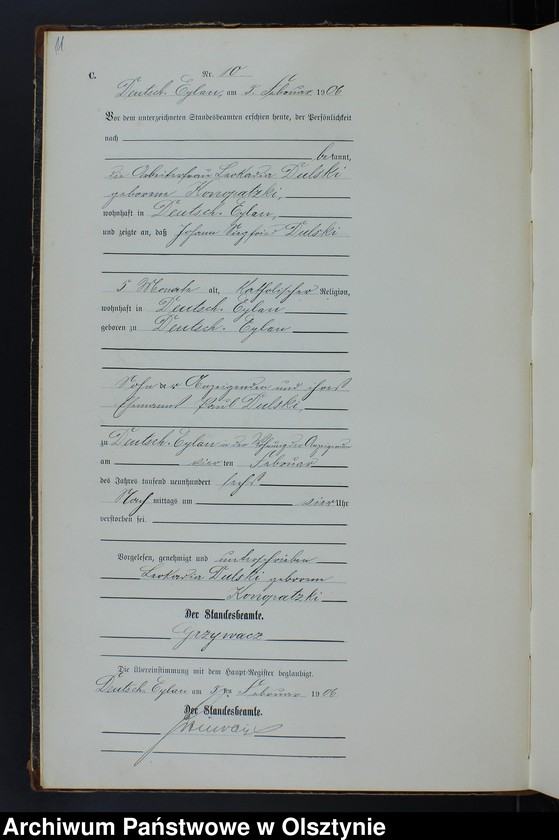 11
C.
Nr. 10
Deutsch. Eylau, am 5. Februar 1906
Vor dem unterzeichneten Standesbeamten erschien heute, der Persönlichkeit
nach
bekannt,
die Arbeiterfrau Leokadia Dulski
geborene Konopatzki,
wohnhaft in Deutsch. Eylau,
und zeigte an, daß Johann Siegfried Dulski
5 Monate alt, Katholischer Religion,
wohnhaft in Deutsch. Eylau
geboren zu Deutsch. Eylau
Sohn der Anzeigenden und ihres
Ehemannes Paul Dulski,
zu Deutsch. Eylau in der Wohnung der Anzeigenden
am vierten Februar
des Jahres tausend neunhundert sechs
Nachmittags um vier Uhr
verstorben sei.
Vorgelesen, genehmigt und unterschrieben
Leokadia Dulski geborene
Konopatzki
Der Standesbeamte.
Grzywacz
Die Übereinstimmung mit dem Haupt-Register beglaubigt.
Deutsch. Eylau am 5ten Februar 1906
Der Standesbeamte.
Archiwum Państwowe w Olsztynie